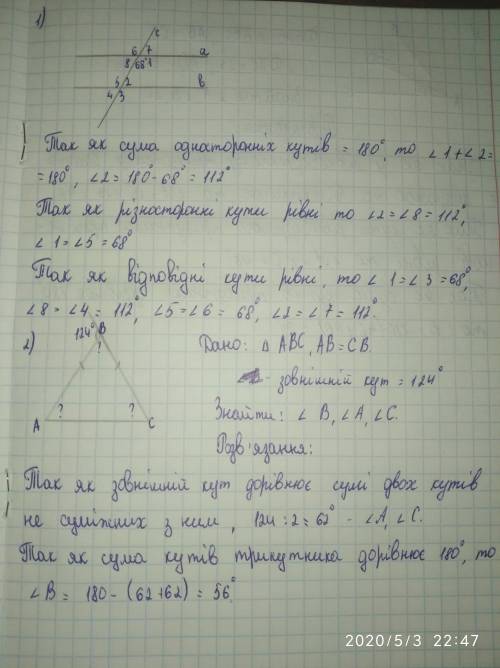 1)
c
6 7 a
8 68° 1
5 2 b
4 3
Так як сума односторонніх кутів = 180°, то ∠1+∠2=
=180°, ∠2= 180°-68°=112°
Так як різносторонні кути рівні то ∠2=∠8=112°,
∠1=∠5=68°
Так як відповідні кути рівні, то ∠1=∠3=68°,
∠8=∠4= 112°, ∠5=∠6= 68°, ∠2=∠7=112°.
2) 124° B Дано: △ ABC, AB=CB.
? - зовнішній кут = 124°
A ? ? C Знайти: ∠ B, ∠A, ∠C.
Розв'язання:
Так як зовнішній кут дорівнює сумі двох кутів
не суміжних з ним, 124:2=62° - ∠A, ∠C.
Так як сума кутів трикутника дорівнює 180°, то
∠B= 180-(62+62)=56°.
2020/5/3 22:47